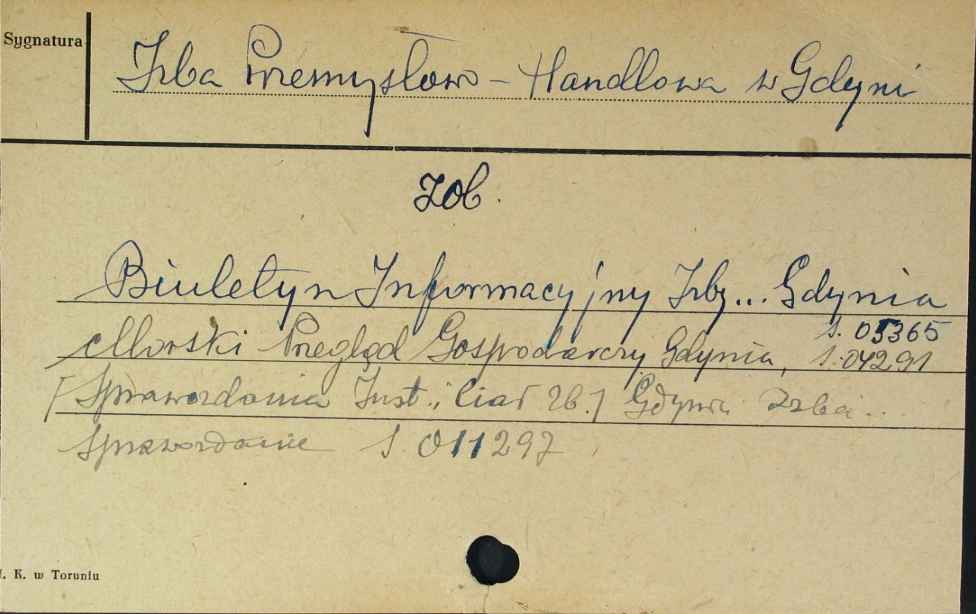 Sygnatura
Izba Przemysłowo-Handlowa w Gdyni
zob.
Biuletyn Informacyjny Izby... Gdynia
S. 05365
Morski Przegląd Gospodarczy Gdynia, S. 04291
[Sprawozdania Inst. i Ciał Zb.] Gdynia Izba...
Sprawozdanie S. 011297
I. K. w Toruniu